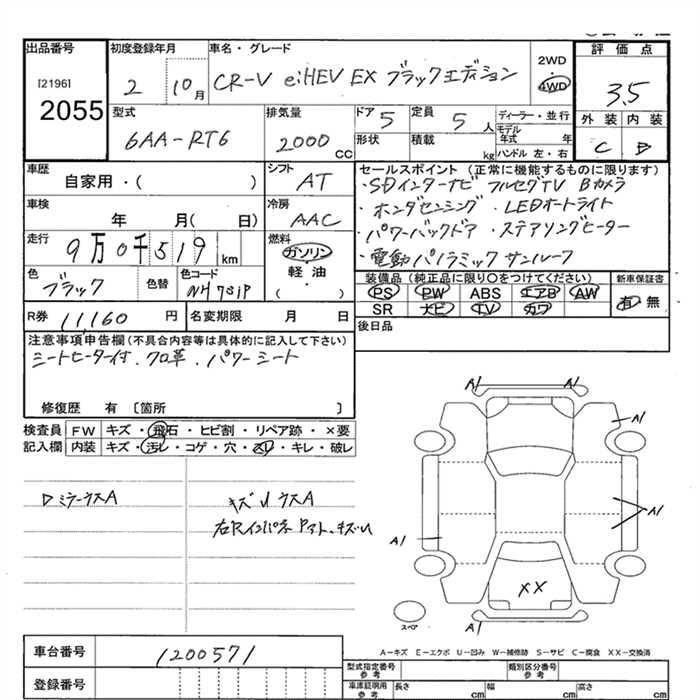 出品番号 初度登録年月 車名・グレード 評価点
[2196] 2 10月 CR-V e:HEV EX ブラックエディション 2WD 4WD 3.5
2055
型式 排気量 ドア 定員 ディーラー・並行 外装 内装
6AA-RT6 2000cc 5 5人 モデル年式 年 C B
形状 積載 kg ハンドル 左・右
車歴 シフト セールスポイント (正常に機能するものに限ります)
自家用・( ) AT ・SDインターナビ フルセグTV Bカメラ
車検 冷房 ・ホンダセンシング ・LEDオートライト
年 月( 日) AAC ・パワーバックドア ・ステアリングヒーター
走行 燃料 ・電動パノラミックサンルーフ
9万0千519km ガソリン
軽油
( )
色 色替 色コード 装備品 (純品に限り○をつけてください) 新車保証書
ブラック NH731P PS PW ABS エアB AW 有 無
SR ナビ TV カワ
R券 11,160円 名変期限 月 日 後日品
注意事項申告欄(不具合内容等は具体的に記入して下さい)
シートヒーター付 . クロ革 . パワーシート
修復歴 有 〔箇所 〕
検査員 FW キズ・飛石・ヒビ割・リペア跡・×要
記入欄 内装 キズ・汚レ・コゲ・穴・スレ・キレ・破レ
A1 A1
A1
A1
A1
XX
A1
スペア
Dミラーウス A キズU ウスA
右Rインパネ アト、キズU
A-キズ E-エクボ U-凹み W-補修跡 S-サビ C-腐食 XX-交換済
車台番号 1200571
登録番号
型式指定番号 参考 類別区分番号 参考
車庫証明用 参考 長さ cm 幅 cm 高さ cm